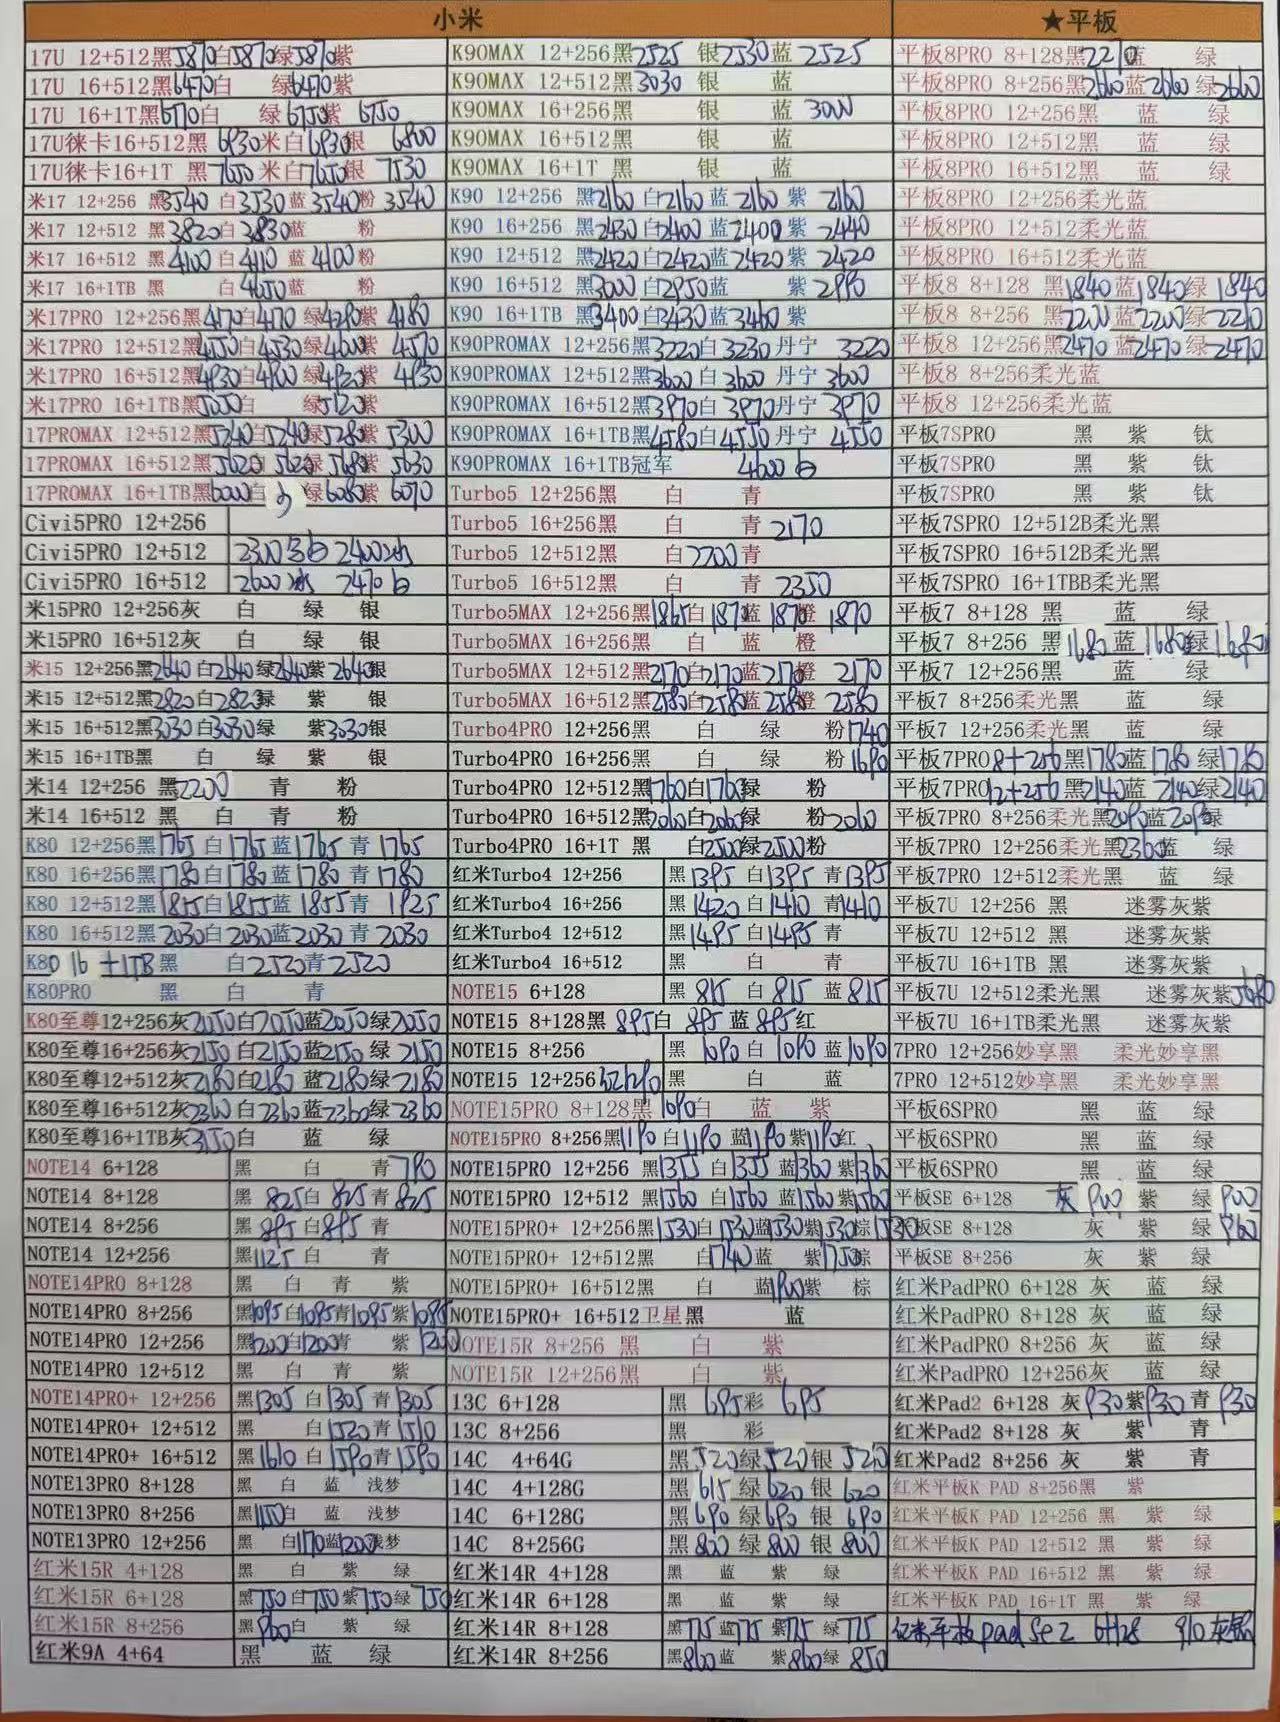 小米
17U 12+512黑5870白5870绿5870紫
17U 16+512黑6470白 绿6470紫
17U 16+1T黑6770白 绿6750紫 6750
17U徕卡16+512黑 6930米白6930银 6900
17U徕卡16+1T 黑7650米白7650银 7530
米17 12+256 黑3540 白3530蓝3540粉 3540
米17 12+512 黑3820白3830蓝 粉
米17 16+512 黑4100白4110蓝4100粉
米17 16+1TB 黑 白4650蓝 粉
米17PRO 12+256黑4170白4170 绿4290紫 4180
米17PRO 12+512黑4550白4530绿4600紫 4570
米17PRO 16+512黑4930白4900绿4920紫 4930
米17PRO 16+1TB黑5050白 绿5120紫
17PROMAX 12+512黑5240白5240绿5280紫 5300
17PROMAX 16+512黑5620白5620绿5680紫 5630
17PROMAX 16+1TB黑6000白 绿6080紫 6070
Civi5PRO 12+256
Civi5PRO 12+512 2300 白 2400冰
Civi5PRO 16+512 2600冰 2470白
米15PRO 12+256灰 白 绿 银
米15PRO 16+512灰 白 绿 银
米15 12+256黑2640白2640绿2640紫2640银
米15 12+512黑2820白2823绿 紫 银
米15 16+512黑3030白3030绿 紫3030银
米15 16+1TB黑 白 绿 紫 银
米14 12+256 黑2200 青 粉
米14 16+512 黑 白 青 粉
K80 12+256黑1765白1765蓝1765青 1765
K80 16+256黑1780白1780蓝1780青 1780
K80 12+512黑1855白1855蓝 1855青 1925
K80 16+512黑2030白2030蓝2030青 2030
K80 16+1TB 黑 白2520青2520
K80PRO 黑 白 青
K80至尊12+256灰2050白2050蓝2050绿2050
K80至尊16+256灰2150白2150蓝2150绿 2150
K80至尊12+512灰2180白2180蓝2180绿2180
K80至尊16+512灰2360白2360蓝2360绿2360
K80至尊16+1TB灰3150白 蓝 绿
NOTE14 6+128 黑 白 青790
NOTE14 8+128 黑 825白 825青 825
NOTE14 8+256 黑895白895青
NOTE14 12+256 黑1125白 青
NOTE14PRO 8+128 黑 白 青 紫
NOTE14PRO 8+256 黑1095白1095青1095紫1095
NOTE14PRO 12+256 黑1200白1200青 紫 1200
NOTE14PRO 12+512 黑 白 青 紫
NOTE14PRO+ 12+256 黑1305白1305青1305
NOTE14PRO+ 12+512 黑 白1520青1510
NOTE14PRO+ 16+512 黑1610白1590青1590
NOTE13PRO 8+128 黑 白 蓝 浅梦
NOTE13PRO 8+256 黑1150白 蓝 浅梦
NOTE13PRO 12+256 黑 白1170蓝1200浅梦
红米15R 4+128 黑 白 紫 绿
红米15R 6+128 黑750白750紫750绿 750
红米15R 8+256 黑860白 紫 绿
红米9A 4+64 黑 蓝 绿
K90MAX 12+256黑2525 银2530蓝 2525
K90MAX 12+512黑3030 银 蓝
K90MAX 16+256黑 银 蓝 3000
K90MAX 16+512黑 银 蓝
K90MAX 16+1T 黑 银 蓝
K90 12+256 黑2160白2160蓝2160紫 2160
K90 16+256 黑2430白2400蓝2400紫 2440
K90 12+512 黑2420白2420蓝2420紫 2420
K90 16+512 黑3000白2950蓝 紫2990
K90 16+1TB 黑3400白3430蓝3460紫
K90PROMAX 12+256黑3220白3230丹宁 3220
K90PROMAX 12+512黑3600白3600丹宁 3600
K90PROMAX 16+512黑3970白3970丹宁3970
K90PROMAX 16+1TB黑4580白4550丹宁4550
K90PROMAX 16+1TB冠军 4600白
Turbo5 12+256黑 白 青
Turbo5 16+256黑 白 青2170
Turbo5 12+512黑 白2200青
Turbo5 16+512黑 白 青 2350
Turbo5MAX 12+256黑1865白1870蓝1870橙 1870
Turbo5MAX 16+256黑 白 蓝 橙
Turbo5MAX 12+512黑2170白2170蓝2170橙 2170
Turbo5MAX 16+512黑2580白2580蓝2580橙 2580
Turbo4PRO 12+256黑 白 绿 粉1740
Turbo4PRO 16+256黑 白 绿 粉1690
Turbo4PRO 12+512黑1760白1760绿 粉
Turbo4PRO 16+512黑2060白2060绿 粉2060
Turbo4PRO 16+1T 黑 白2500绿2500粉
红米Turbo4 12+256 黑1395白1395青1395
红米Turbo4 16+256 黑1420白1410青1410
红米Turbo4 12+512 黑1495白1495青
红米Turbo4 16+512 黑 白 青
NOTE15 6+128 黑 815白815蓝815
NOTE15 8+128黑 895白 895蓝 895红
NOTE15 8+256 黑 1090白 1090蓝1090
NOTE15 12+256红1290 黑 白 蓝
NOTE15PRO 8+128黑1090白 蓝 紫
NOTE15PRO 8+256黑1190白1190蓝1190紫1190红
NOTE15PRO 12+256 黑1355白1355蓝1360紫1360
NOTE15PRO 12+512 黑1560白1560蓝1560紫1560
NOTE15PRO+ 12+256黑1530白1530蓝1530紫1530棕1530
NOTE15PRO+ 12+512黑 白1740蓝 紫1750棕
NOTE15PRO+ 16+512黑 白 蓝1900紫 棕
NOTE15PRO+ 16+512卫星黑 蓝
NOTE15R 8+256 黑 白 紫
NOTE15R 12+256黑 白 紫
13C 6+128 黑 695彩 695
13C 8+256 黑 彩
14C 4+64G 黑520绿520银 520
14C 4+128G 黑615绿620银 620
14C 6+128G 黑690绿690银 690
14C 8+256G 黑800绿800银 800
红米14R 4+128 黑 蓝 紫 绿
红米14R 6+128 黑 蓝 紫 绿
红米14R 8+128 黑775蓝775紫775绿 775
红米14R 8+256 黑860蓝 紫860绿 850
★平板
平板8PRO 8+128黑2270蓝 绿
平板8PRO 8+256黑2660蓝2660绿2660
平板8PRO 12+256黑 蓝 绿
平板8PRO 12+512黑 蓝 绿
平板8PRO 16+512黑 蓝 绿
平板8PRO 12+256柔光蓝
平板8PRO 12+512柔光蓝
平板8PRO 16+512柔光蓝
平板8 8+128 黑1840蓝1840绿 1840
平板8 8+256 黑2200蓝2200绿2210
平板8 12+256黑2470蓝2470绿2470
平板8 8+256柔光蓝
平板8 12+256柔光蓝
平板7SPRO 黑 紫 钛
平板7SPRO 黑 紫 钛
平板7SPRO 黑 紫 钛
平板7SPRO 12+512B柔光黑
平板7SPRO 16+512B柔光黑
平板7SPRO 16+1TBB柔光黑
平板7 8+128 黑 蓝 绿
平板7 8+256 黑1680蓝1680绿1690
平板7 12+256黑 蓝 绿
平板7 8+256柔光黑 蓝 绿
平板7 12+256柔光黑 蓝 绿
平板7PRO8+256黑1780蓝1780绿1780
平板7PRO12+256黑2140蓝2140绿2140
平板7PRO 8+256柔光黑2090蓝2090绿
平板7PRO 12+256柔光黑2360蓝 绿
平板7PRO 12+512柔光黑 蓝 绿
平板7U 12+256 黑 迷雾灰紫
平板7U 12+512 黑 迷雾灰紫
平板7U 16+1TB 黑 迷雾灰紫
平板7U 12+512柔光黑 迷雾灰紫5080
平板7U 16+1TB柔光黑 迷雾灰紫
7PRO 12+256妙享黑 柔光妙享黑
7PRO 12+512妙享黑 柔光妙享黑
平板6SPRO 黑 蓝 绿
平板6SPRO 黑 蓝 绿
平板6SPRO 黑 蓝 绿
平板SE 6+128 灰 900紫 绿900
平板SE 8+128 灰 紫 绿960
平板SE 8+256 灰 紫 绿
红米PadPRO 6+128 灰 蓝 绿
红米PadPRO 8+128 灰 蓝 绿
红米PadPRO 8+256 灰 蓝 绿
红米PadPRO 12+256灰 蓝 绿
红米Pad2 6+128 灰930紫930青 930
红米Pad2 8+128 灰 紫 青
红米Pad2 8+256 灰 紫 青
红米平板K PAD 8+256黑 紫
红米平板K PAD 12+256 黑 紫 绿
红米平板K PAD 12+512 黑 紫 绿
红米平板K PAD 16+512 黑 紫 绿
红米平板K PAD 16+1T 黑 紫 绿
红米平板pad Se2 6+128 910灰银